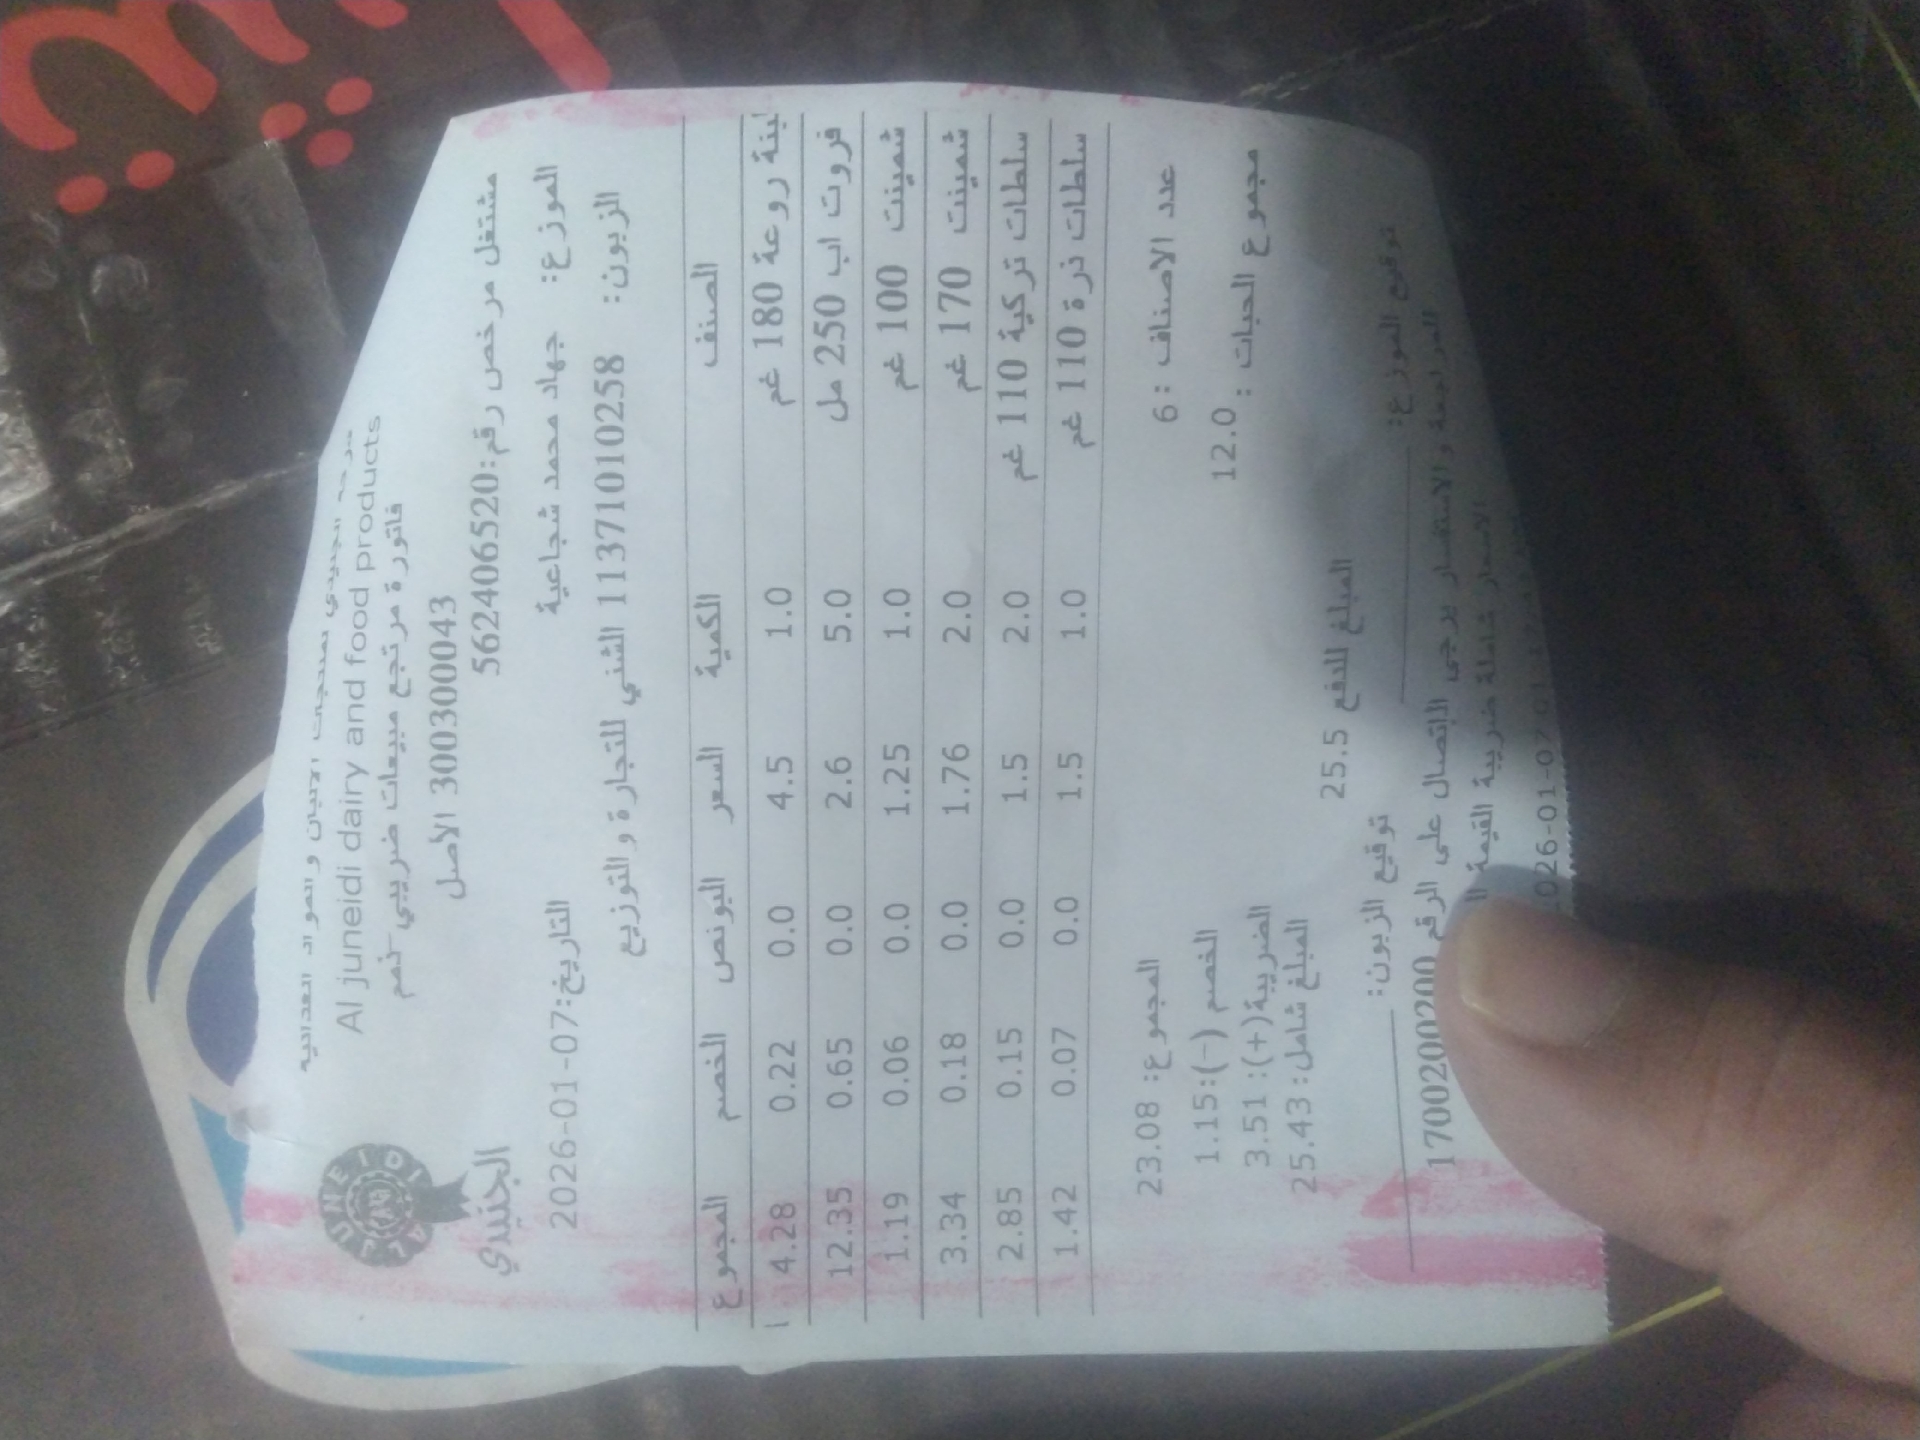 AL JUNEIDI
الجنيدي
شركة الجنيدي لمنتجات الالبان والمواد الغذائية
Al juneidi dairy and food products
فاتورة مرتجع مبيعات ضريبي ذمم
30030000043 الأصل
مشتغل مرخص رقم:562406520
الموزع: جهاد محمد شجاعية التاريخ:2026-01-07
الزبون: 11371010258 الشني للتجارة و التوزيع
الصنف الكمية السعر البونص الخصم المجموع
لبنة روعة 180 غم 1.0 4.5 0.0 0.22 4.28
فروت اب 250 مل 5.0 2.6 0.0 0.65 12.35
شمينت 100 غم 1.0 1.25 0.0 0.06 1.19
شمينت 170 غم 2.0 1.76 0.0 0.18 3.34
سلطات تركية 110 غم 2.0 1.5 0.0 0.15 2.85
سلطات ذرة 110 غم 1.0 1.5 0.0 0.07 1.42
عدد الاصناف : 6 المجموع: 23.08
مجموع الحبات : 12.0 الخصم (-):1.15
الضريبة(+): 3.51
المبلغ شامل: 25.43
المبلغ للدفع 25.5
توقيع الموزع: توقيع الزبون:
للمراجعة و الاستفسار يرجى الاتصال على الرقم 1700200200
الاسعار شاملة ضريبة القيمة
026-01-07